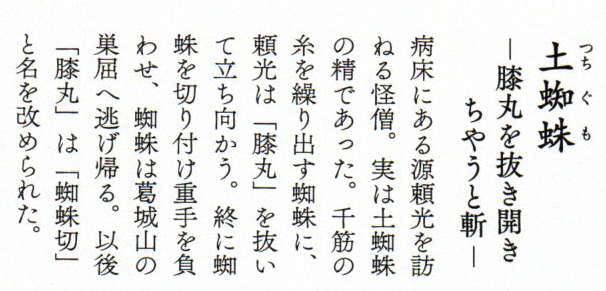 土蜘蛛
つちぐも
―膝丸を抜き開き
ちやうと斬―
病床にある源頼光を訪
ねる怪僧。実は土蜘蛛
の精であった。千筋の
糸を繰り出す蜘蛛に、
頼光は「膝丸」を抜い
て立ち向かう。終に蜘
蛛を切り付け重手を負
わせ、蜘蛛は葛城山の
巣屈へ逃げ帰る。以後
「膝丸」は「蜘蛛切」
と名を改められた。